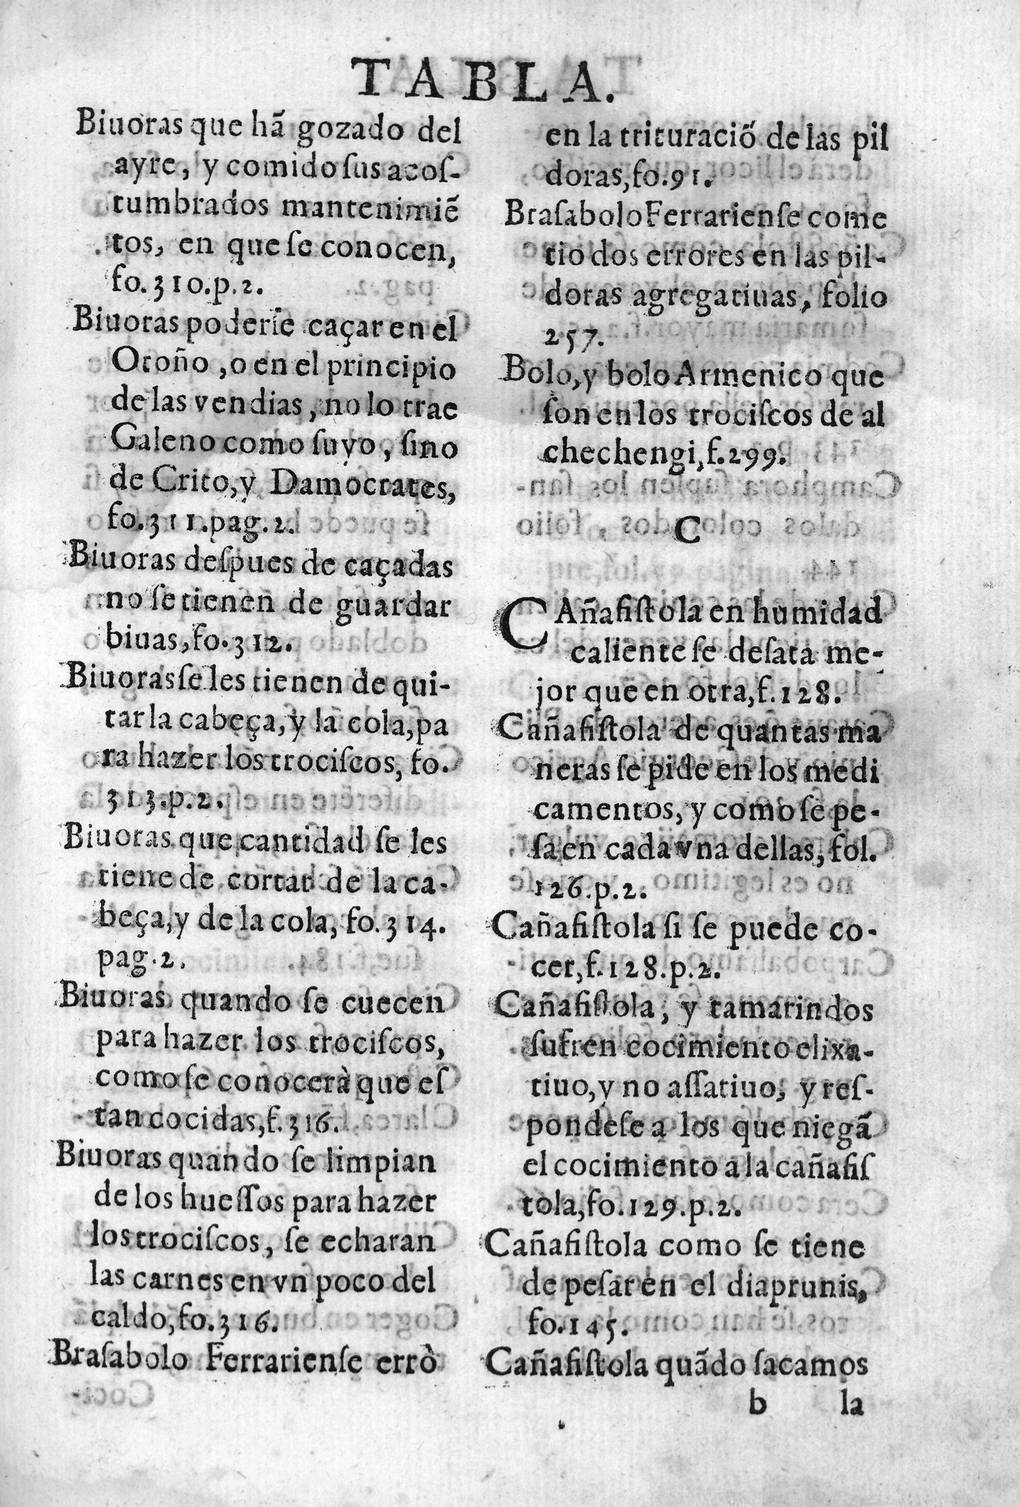 TABLA.
Biuoras que hã gozado del
ayre, y comido sus acoſ-
tumbrados mantenimiẽ
tos, en que ſe conocen,
fo.310.p.2.
Biuoras poderſe caçar en el
Otoño, o en el principio
de las vendias, no lo trae
Galeno como ſuyo, ſino
de Crito, y Damocrates,
fo.311.pag.2.
Biuoras deſpues de caçadas
no ſe tienen de guardar
biuas, fo.312.
Biuoras ſe les tienen de qui-
tar la cabeça, y la cola, pa
ra hazer los trociſcos, fo.
313.p.2.
Biuoras que cantidad ſe les
tiene de cortar de la ca-
beça, y de la cola, fo.314.
pag.2.
Biuoras quando ſe cuecen
para hazer los trociſcos,
como ſe conocerà que eſ
tan cocidas, f.316.
Biuoras quando ſe limpian
de los hueſſos para hazer
los trociſcos, ſe echaran
las carnes en vn poco del
caldo, fo.316.
Braſabolo Ferrarienſe errò
en la trituraciõ de las pil
doras, fo.91.
Braſabolo Ferrarienſe come
tio dos errores en las pil-
doras agregatiuas, folio
257.
Bolo, y bolo Armenico que
ſon en los trociſcos de al
chechengi, f.299.
C
CAñafiſtola en humidad
caliente ſe deſata me-
jor que en otra, f.128.
Cañafiſtola de quantas ma
neras ſe pide en los medi
camentos, y como ſe pe-
ſa en cada vna dellas, fol.
126.p.2.
Cañafiſtola ſi ſe puede co-
cer, f.128.p.2.
Cañafiſtola, y tamarindos
sufren cocimiento elixa-
tiuo, y no aſſatiuo, y reſ-
pondeſe a los que niegã
el cocimiento a la cañafiſ
tola, fo.129.p.2.
Cañafiſtola como ſe tiene
de peſar en el diaprunis,
fo.145.
Cañafiſtola quãdo ſacamos
b la